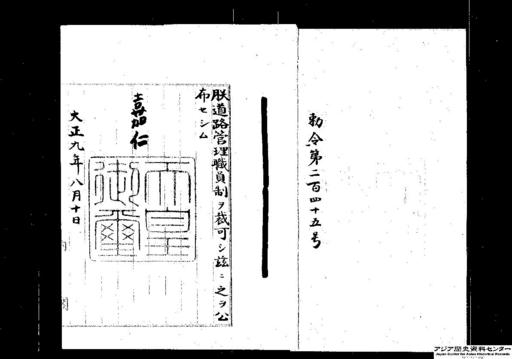 勅令第二百四十五号
朕道路管理職員制ヲ裁可シ茲ニ之ヲ公
布セシム
嘉仁
天皇
御璽
大正九年八月十日
アジア歴史資料センター
Japan Center for Asian Historical Records